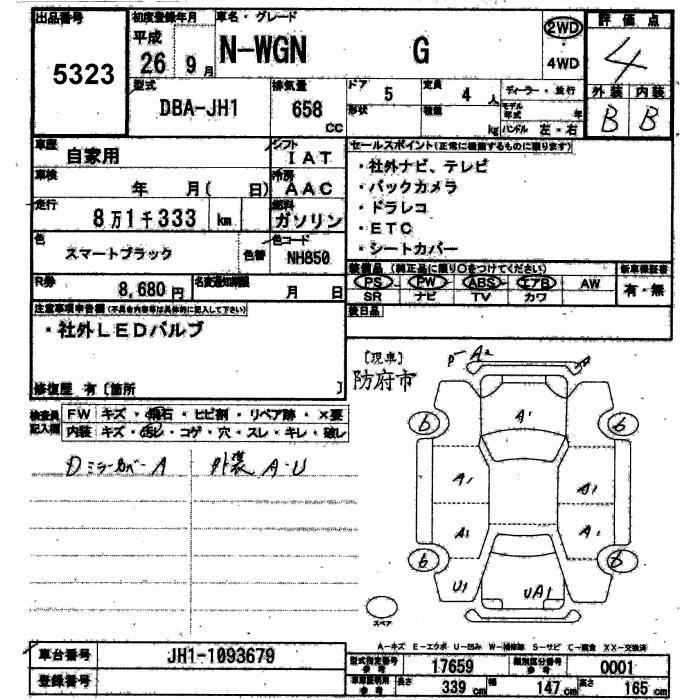 出品番号 初度登録年月 車名・グレード 評価点
5323
平成 26 9月 N-WGN G
2WD 4WD
4
型式 排気量 ドア 定員 ディーラー・並行 外装 内装
DBA-JH1 658 cc 5 4人
形状 積載 kg モデル年式 年 ハンドル 左・右
B B
車歴 自家用 シフト IAT
車検 年 月( 日) 冷房 AAC
走行 8万1千333 km 燃料 ガソリン
色 スマートブラック 色替 色コード NH850
セールスポイント(正常に機能するものに限ります)
・社外ナビ、テレビ
・バックカメラ
・ドラレコ
・ETC
・シートカバー
R券 8,680円 名変通知期限 月 日
装備品 (純正品に限り○をつけてください) 新車保証書
PS PW ABS エアB AW 有・無
SR ナビ TV カワ
後日品
注意事項申告欄(不具合内容等は具体的に記入して下さい)
・社外LEDバルブ
修復歴 有 [箇所 ]
[現車]
防府市
検査員記入欄
FW キズ・飛石・ヒビ割・リペア跡・×要
内装 キズ・汚レ・コゲ・穴・スレ・キレ・破レ
Dミラーカバー A 外装 A・U
A2
A1
6 6
A1 A1
A1 A1
6 6
U1 UA1
スペア
A-キズ E-エクボ U-凹み W-補修跡 S-サビ C-腐食 XX-交換済
車台番号 JH1-1093679
登録番号
型式指定番号 参考 17659 類別区分番号 参考 0001
車庫証明用 参考 長さ 339 cm 幅 147 cm 高さ 165 cm